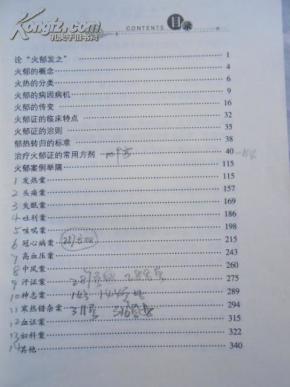 CONTENTS 目录
论“火郁发之” 1
火郁的概念 4
火热的分类 6
火郁的病因病机 9
火郁的传变 16
火郁证的临床特点 32
火郁证的治则 35
郁热转归的标准 38
治疗火郁证的常用方剂 40
火郁案例举隅 115
1 发热案 115
2 头痛案 157
3 失眠案 169
4 吐利案 186
5 咳喘案 198
6 冠心病案 215
7 高血压案 243
8 中风案 260
9 汗证案 275
10 神志案 289
11 寒热错杂案 294
12 血证案 315
13 妇科案 322
14 其他 340